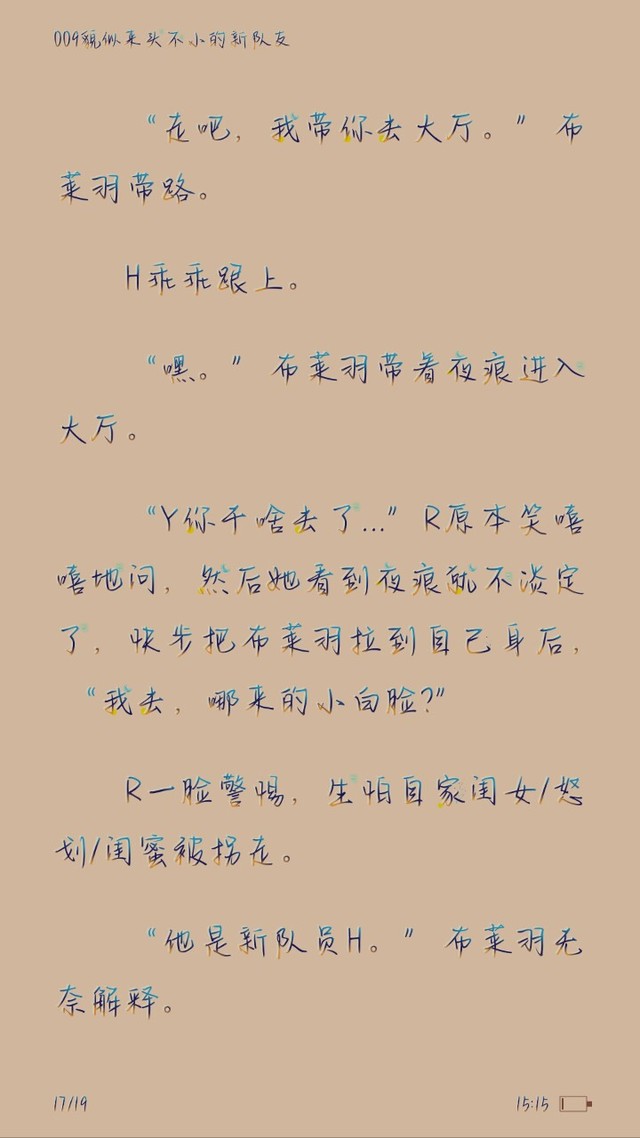 009貌似来头不小的新队友
“走吧，我带你去大厅。” 布
莱羽带路。
H乖乖跟上。
“嘿。” 布莱羽带着夜痕进入
大厅。
“Y你干啥去了...” R原本笑嘻
嘻地问，然后她看到夜痕就不淡定
了，快步把布莱羽拉到自己身后，
“我去，哪来的小白脸?”
R一脸警惕，生怕自家闺女/怒
划/闺蜜被拐走。
“他是新队员H。” 布莱羽无
奈解释。
17/19
15:15